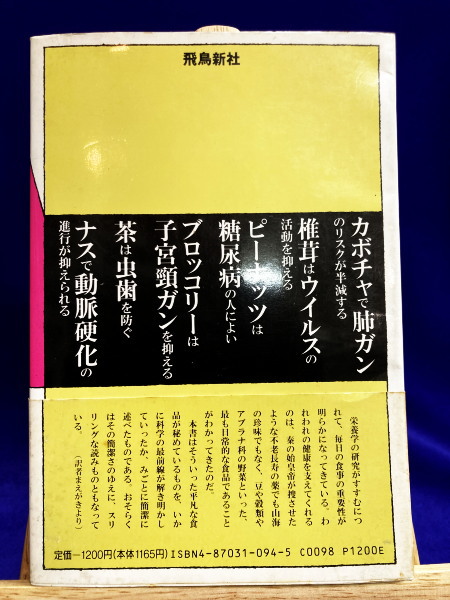 飛鳥新社
カボチャで肺ガン
のリスクが半減する
椎茸はウイルスの
活動を抑える
ピーナッツは
糖尿病の人によい
ブロッコリーは
子宮頸ガンを抑える
茶は虫歯を防ぐ
ナスで動脈硬化の
進行が抑えられる
栄養学の研究がすすむにつ
れて、毎日の食事の重要性が
明らかになってきている。わ
れわれの健康を支えてくれる
のは、秦の始皇帝が捜させた
ような不老長寿の薬でも山海
の珍味でもなく、豆や穀類や
アブラナ科の野菜といった、
最も日常的な食品であること
がわかってきたのだ。
本書はそういった平凡な食
品が秘めているものを、いか
に科学の最前線が解き明かし
ていったか、みごとに簡潔に
述べたものである。おそらく
はその簡潔さのゆえに、スリ
リングな読みものともなって
いる。（訳者まえがきより）
定価—1200円(本体1165円) ISBN4-87031-094-5 C0098 P1200E